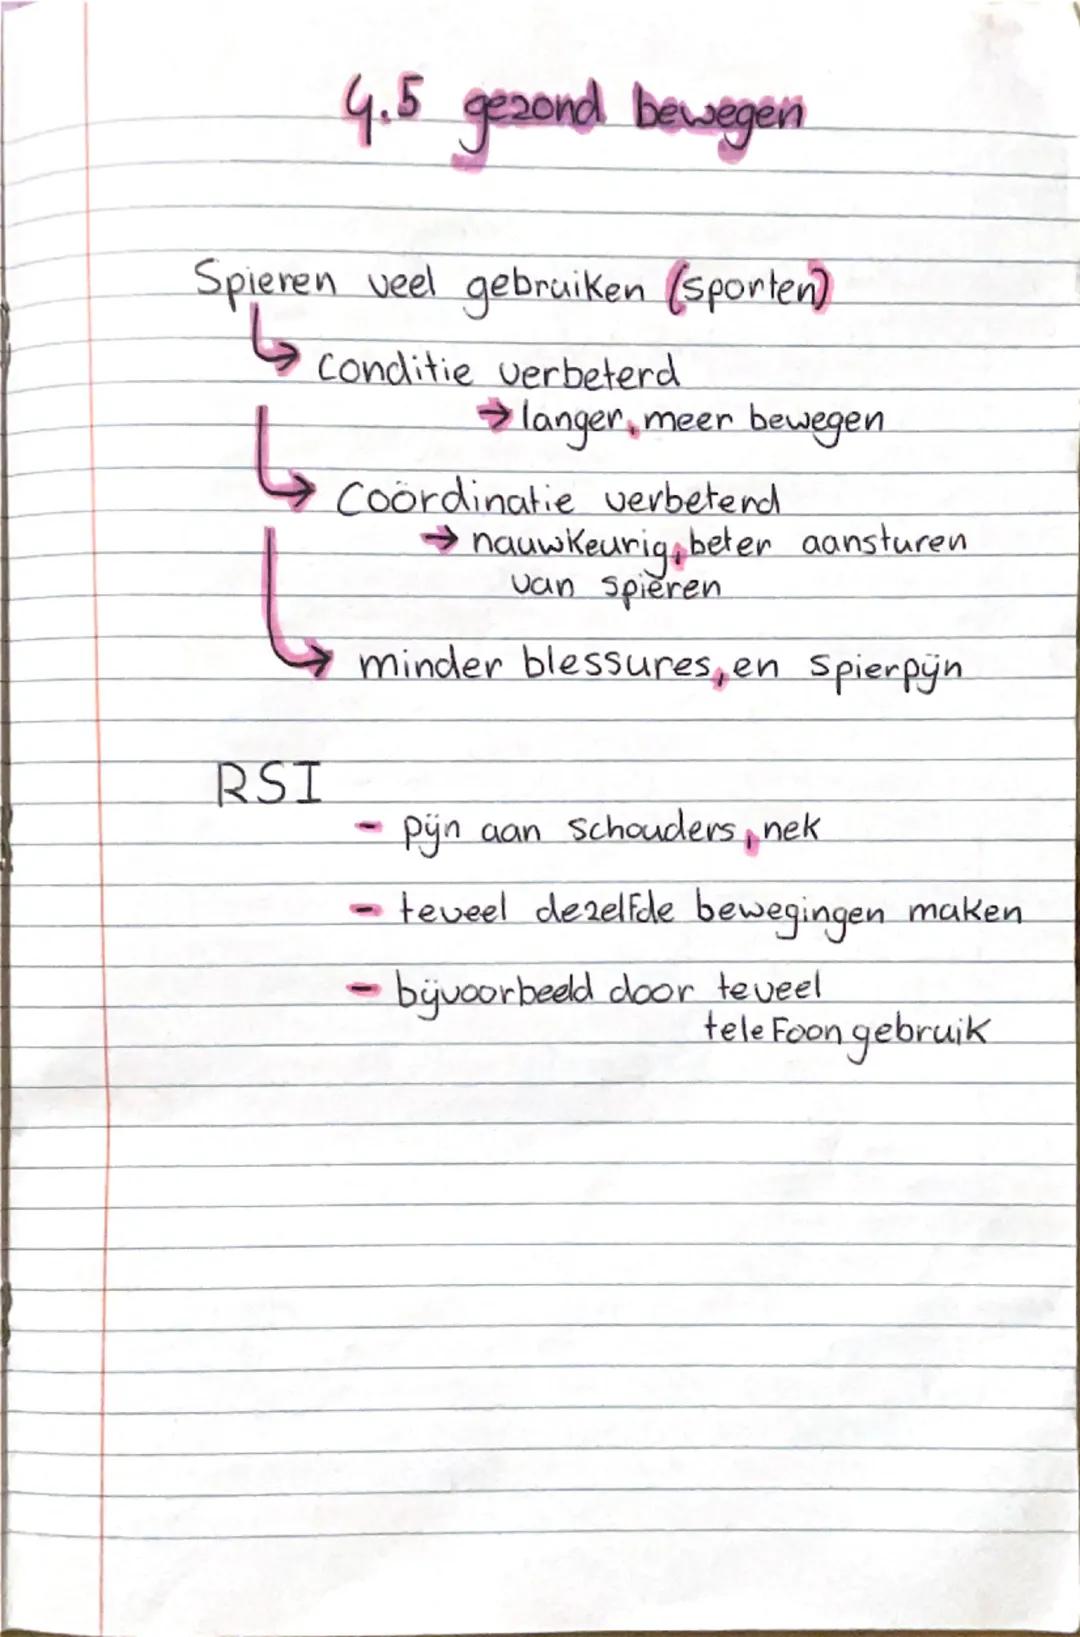 4.5 gezond bewegen
Spieren veel gebruiken (sporten)
↳ conditie verbeterd
→ langer, meer bewegen
↳ Coördinatie verbeterd
→ nauwkeurig, beter aansturen
van spieren
↳ minder blessures, en spierpijn
RSI
- pijn aan schouders, nek
- teveel dezelfde bewegingen maken
- bijvoorbeeld door teveel
telefoon gebruik